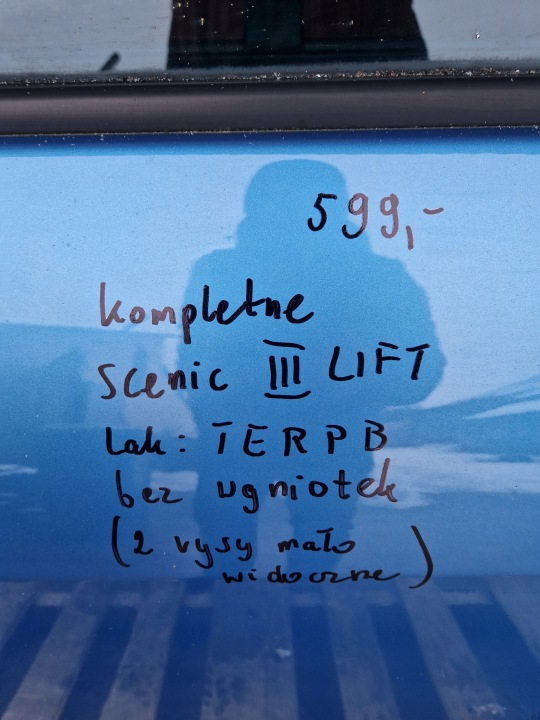 599,-
kompletne
Scenic III LIFT
Lak: TERPB
bez wgniotek
(2 rysy mało
widoczne)